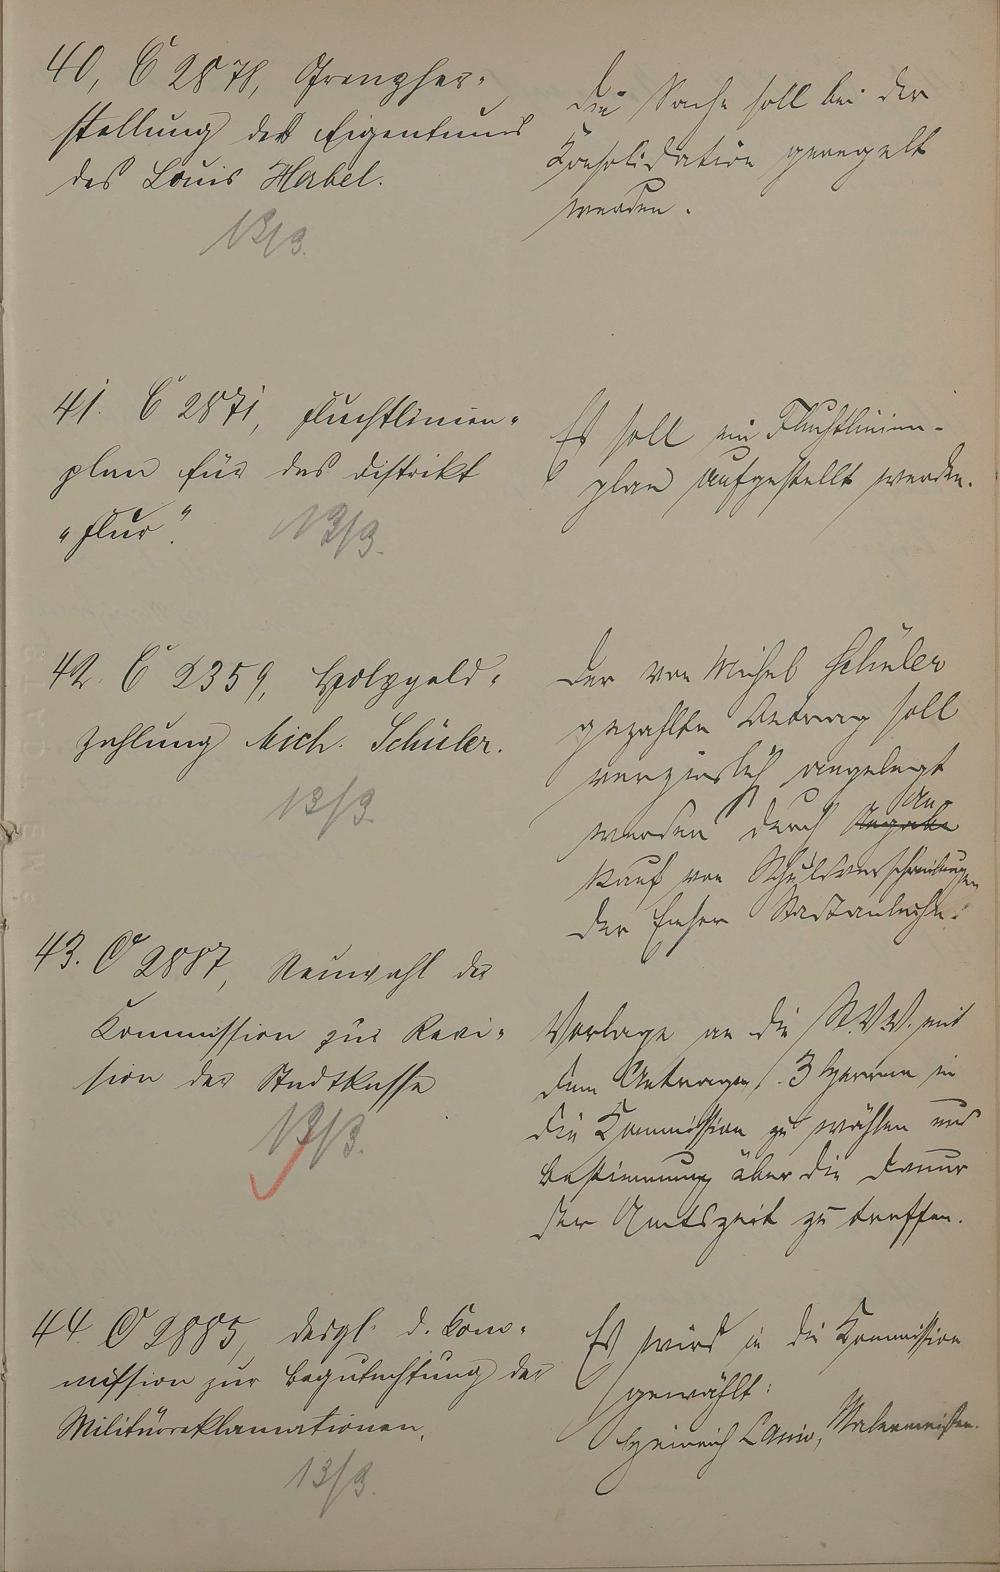 40, C 2878, Grenzher-
stellung des Eigentums
des Louis Habel.
13/3.
Die Sache soll bei der
Konsolidation geregelt
werden.
41. C 2871, Fluchtlinien-
plan für das Distrikt
"Flur".
13/3.
Es soll ein Fluchtlinien-
plan aufgestellt werden.
42. C 2359, Holzgeld-
zahlung Mich. Schüler.
13/3.
Der von Michel Schüler
gezahlte Betrag soll
verzinslich angelegt
werden durch An-
kauf von Schuldverschreibungen
der Emser Stadtanleihe.
43. C 2887, Neuwahl der
Kommission zur Revi-
sion der Stadtkasse
13/3.
Vorlage an die St.V.V. mit
dem Antrage, 3 Herren in
die Kommission zu wählen und
Bestimmung über die Dauer
der Amtszeit zu treffen.
44 C 2885, desgl. d. Kom-
mission zur Begutachtung der
Militärreklamationen.
13/3.
Es wird in die Kommission
gewählt:
Heinrich Malermeister.